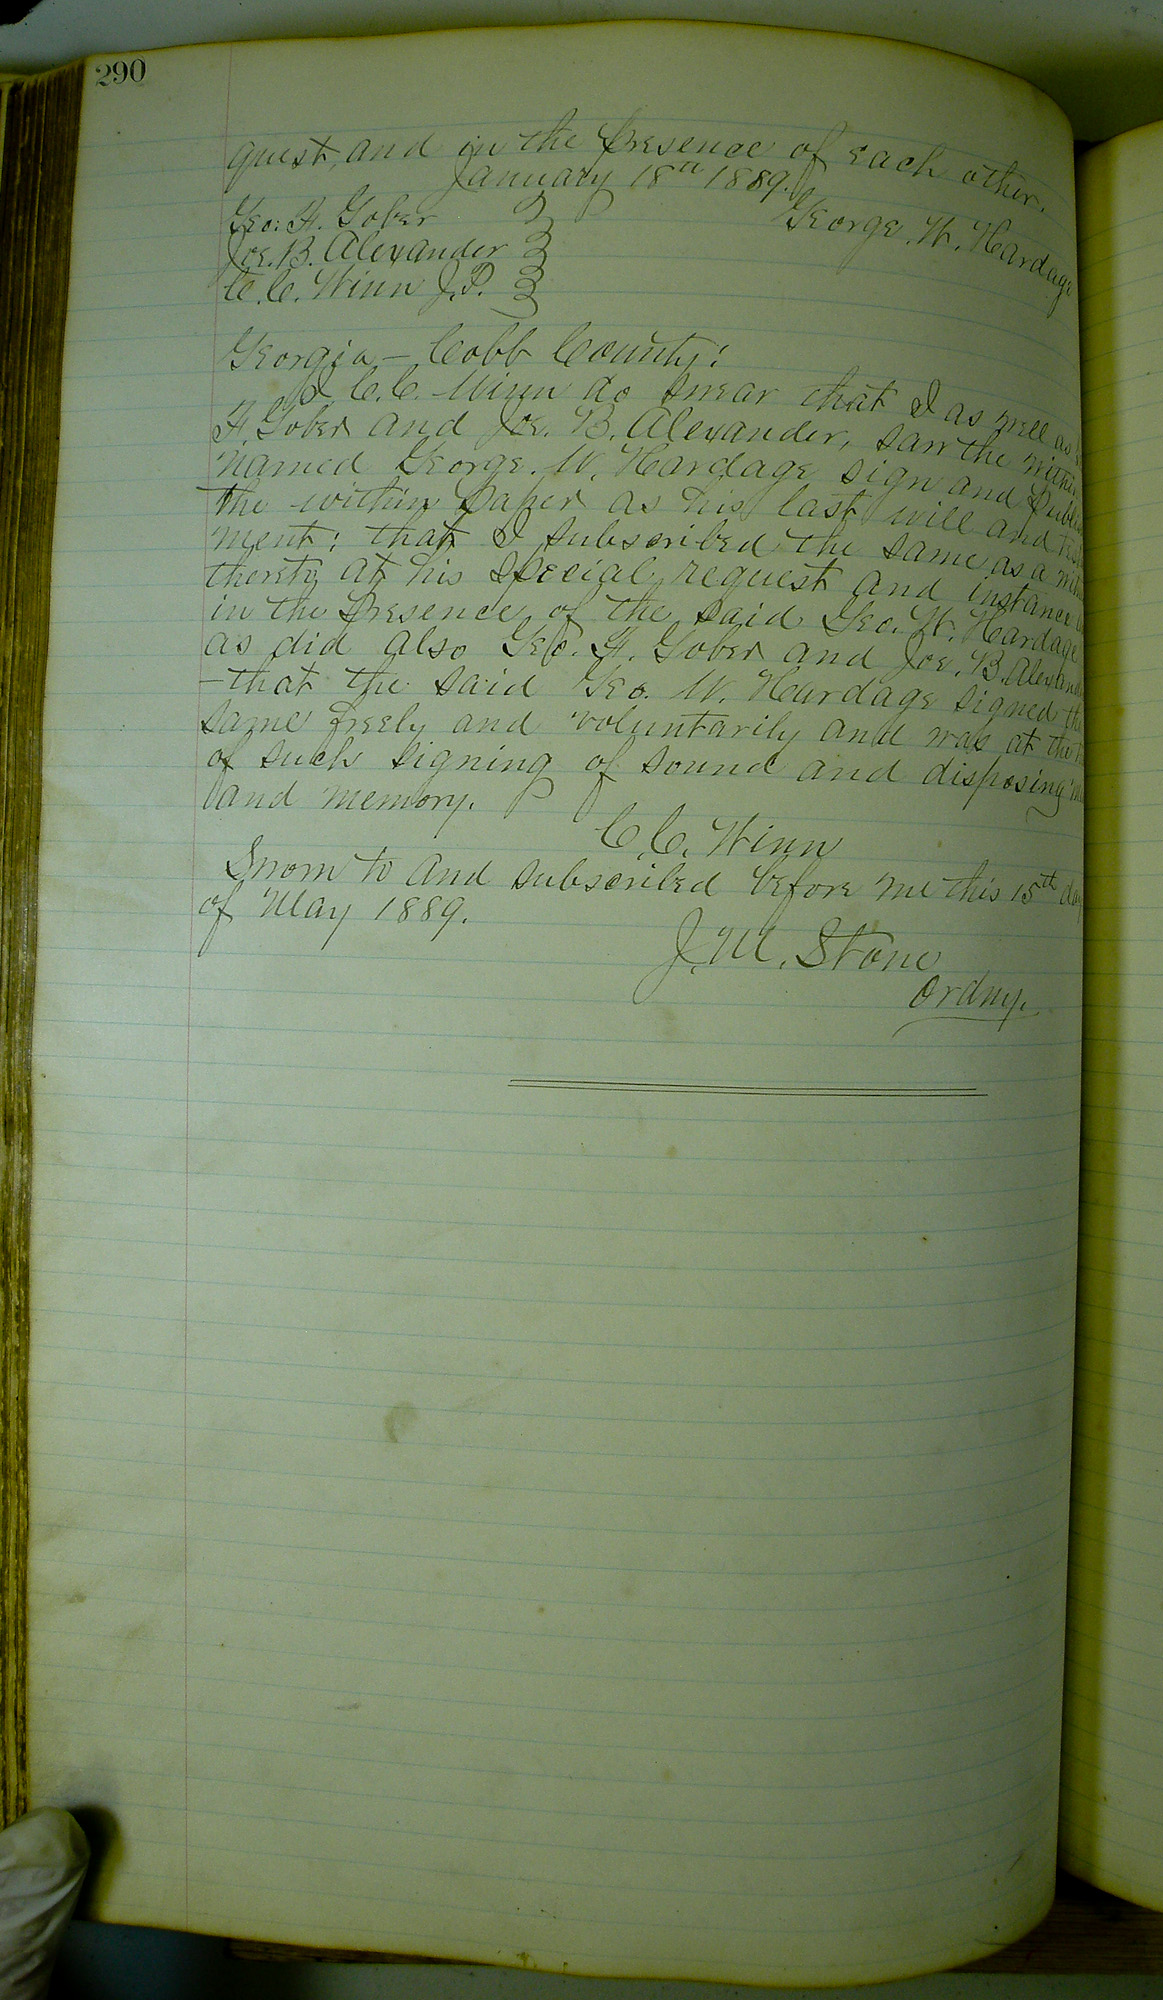 290
quest, and in the presence of each other.
January 18th 1889.
George. W. Hardage
Geo. F. Gober
Joe. B. Alexander
C. C. Winn J. P.
Georgia – Cobb County:
I C. C. Winn do swear that I as well as
F. Gober and Joe. B. Alexander, saw the within
named George. W. Hardage sign and
the within paper as his last will and
ment; that I subscribed the same as a
thereto at his special request and instance
in the presence of the said Geo. W. Hardage
as did also Geo. F. Gober and Joe. B. Alexander
– that the said Geo. W. Hardage signed the
same freely and voluntarily and was at the
of such signing of sound and disposing
and memory.
C. C. Winn
Sworn to and subscribed before me this 15th day
of May 1889.
J. M. Stone
Ordny.